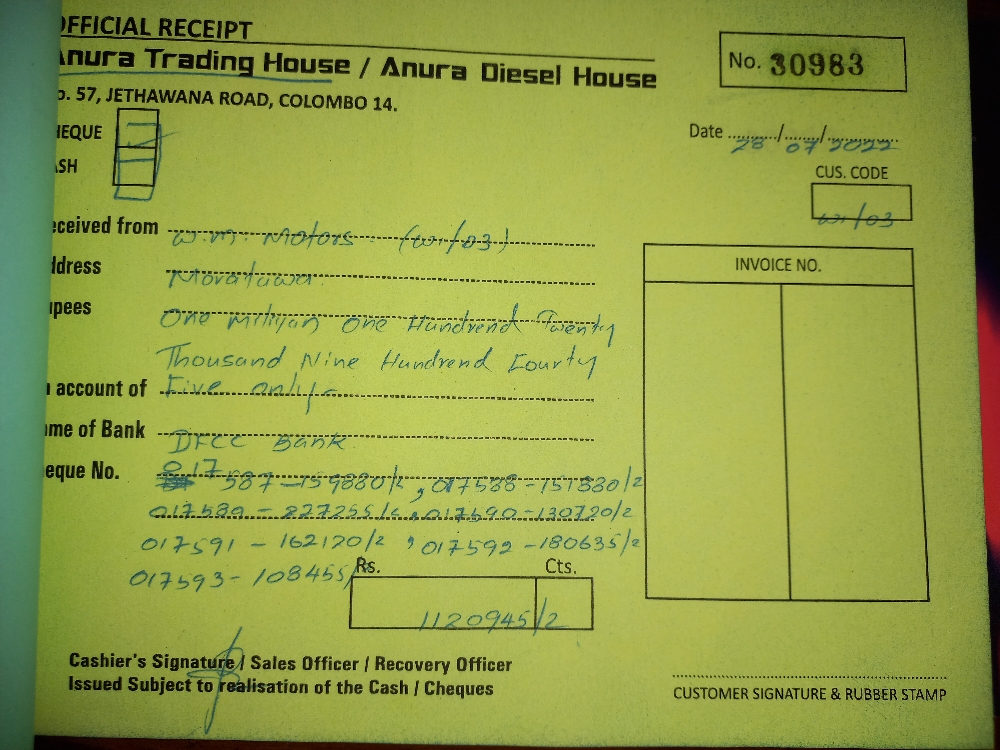 OFFICIAL RECEIPT
Anura Trading House / Anura Diesel House
No. 30983
o. 57, JETHAWANA ROAD, COLOMBO 14.
HEQUE
ASH
Date 28/07/2022
CUS. CODE
wr/03
eceived from W.M. Motors (wr/03)
ddress Moratuwa.
upees One miliyan One Hundrend Twenty
Thousand Nine Hundrend Fourty
n account of Five only
ame of Bank DFCC Bank
heque No. 017587-159880/2, 017588-151880/2
017589 - 227255/2, 017590-130720/2
017591 - 162120/2, 017592 -180635/2
017593- 108455/
Rs. Cts.
1120945/2
INVOICE NO.
Cashier's Signature / Sales Officer / Recovery Officer
Issued Subject to realisation of the Cash / Cheques
CUSTOMER SIGNATURE & RUBBER STAMP